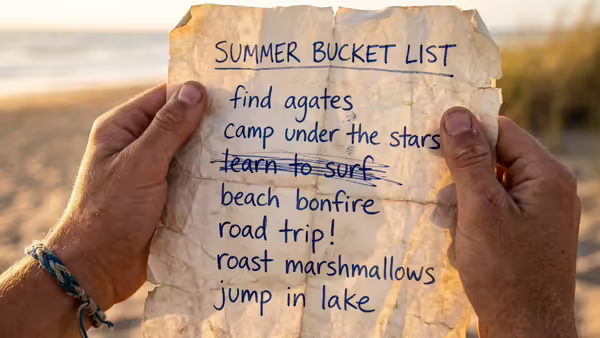 SUMMER BUCKET LIST
find agates
camp under the stars
learn to surf
beach bonfire
road trip!
roast marshmallows
jump in lake